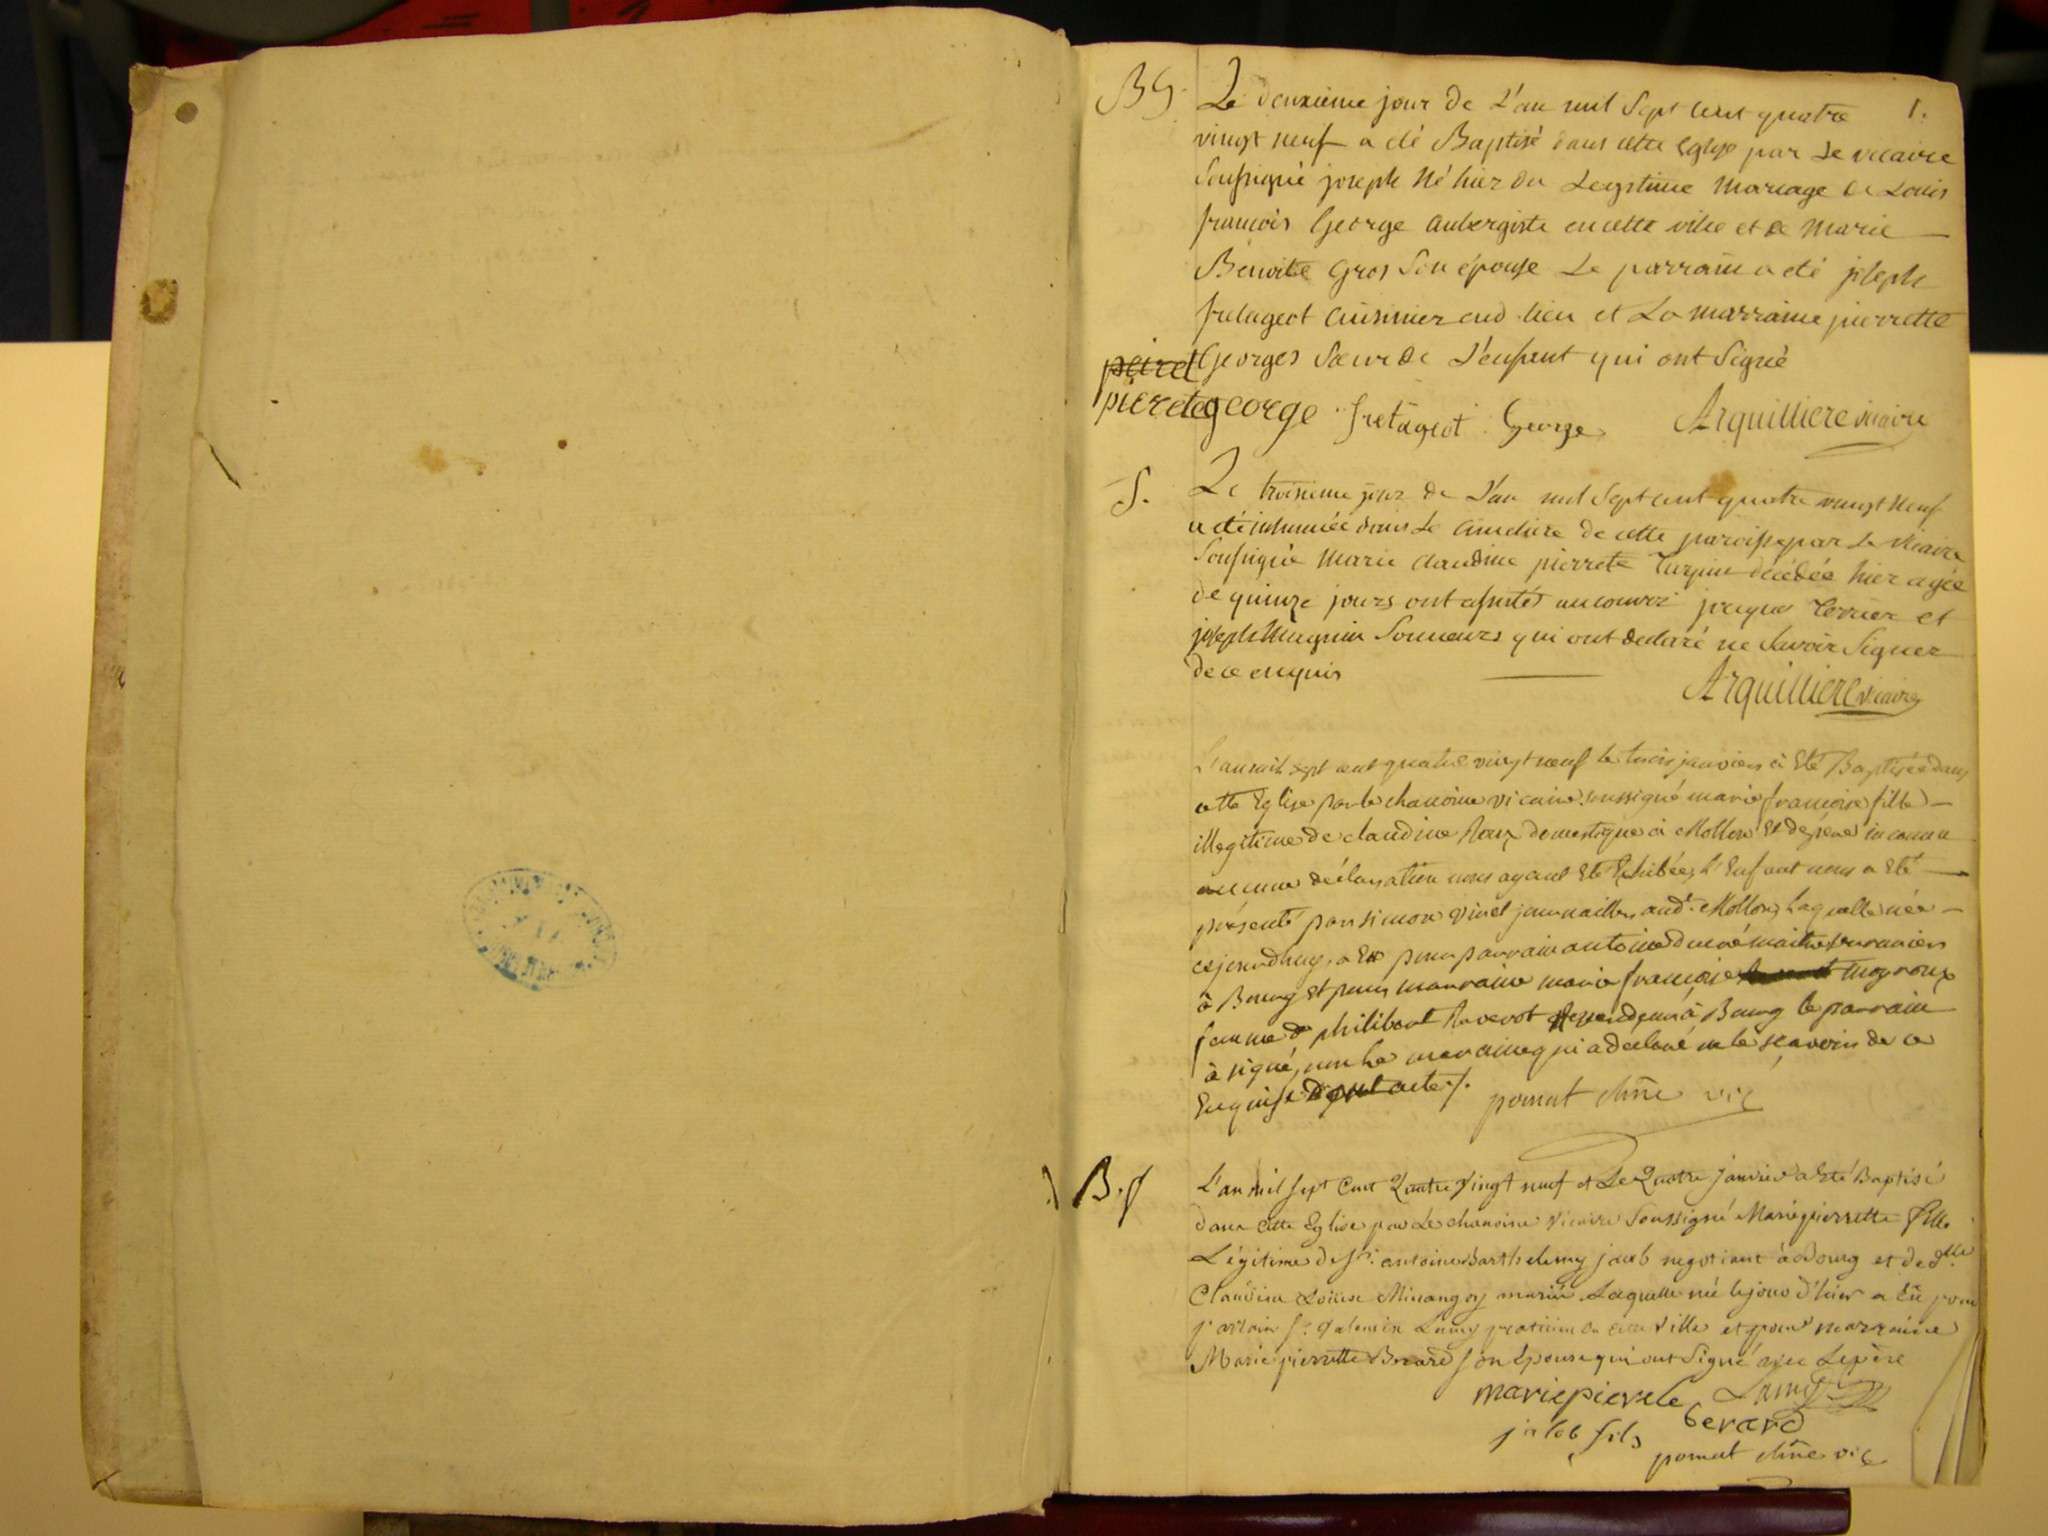 BG. Le deuxieme jour de L'an mil Sept cent quatre 1.
vingt neuf a été Baptisé dans cette Eglise par Le vicaire
Soussigné joseph Né hier du Legitime Mariage de Louis
francois George aubergiste en cette ville et de Marie
Benoite Gros Son épouse Le parrain a été joseph
fretageot Cuisinier end. lieu et La marraine pierrette
Georges Sœur de L'enfant qui ont Signé
pierete george fretageot George Arquilliere vicaire
S. Le troisieme jour de L'an mil Sept cent quatre vingt Neuf
a été inhumée dans Le Cimetiere de cette paroisse par Le Vicaire
Soussigné Marie Claudine pierrete decédée hier agée
de quinze jours ont assistés au convoi jacques Terrier et
joseph Magnin Sonneurs qui ont declaré ne Savoir Signer
de ce enquis
Arquilliere vicaire
L'an mil sept cent quatre vingt neuf le trois janvier à Eté Baptisée dans
cette Eglise par le chanoine vicaire soussigné marie francoise fille
illegitime de claudine Roux domestique à Mollon Et de père inconnu
aucune déclaration nous ayant Eté Exhibée, L'Enfant nous a Eté
présenté par simon Vinet journaillier aud. Mollon, Laquelle née
cejourdhuy, a Eu pour parrain antoine maitre
à Bourg Et pour marraine marie francoise
femme de philibert à Bourg le parrain
à signé, non la marraine qui a declaré ne le scavoir de ce
Enquise
pomat chne vic
B. f L'an mil sept Cent Quatre Vingt neuf et Le Quatre Janvier a Eté Baptisé
dans Cette Eglise par Le chanoine Vicaire Soussigné Marie pierrette fille
Légitime de Sr. antoine Barthelemy jacob negotiant à Bourg et de dlle
Claudine Louise mariés Laquelle né le jour d'hier a Eû pour
parrain Sr. Lamy praticien en cette Ville et pour marraine
Marie pierrette Berard Son Epouse qui ont Signé avec Le père
marie pierrete Lamy
berard
jacob fils
pomat chne vic